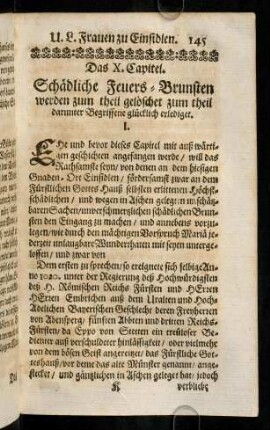 U. L. Frauen zu Einsidlen. 145
Das X. Capitel.
Schädliche Feuers-Brunsten
werden zum theil gelöschet zum theil
darunter Begriffene glücklich erlediget.
I.
EHe und bevor dieses Capitel mit auß wärti-
gen geschichten angefangen werde / will das
Rachsamste seyn / von denen an dem hiesigen
Gnaden-Ort Einsidlen / fördersamst zwar an dem
Fürstlichen Gottes Hauß selbsten erlittenen Höchst-
schädlichen / und wegen in Aschen gelegten unschätz-
baren Sachen / unverschmertzlichen schädlichen Brun-
sten den Eingang zu machen / und annebens vorzu-
legen / wie durch den mächtigen Vorspruch Mariä je-
derzeit unlaugbare Wunderthaten mit seyen unterge-
loffen / und zwar von
Dem ersten zu sprechen / so ereignete sich selbige An-
no 1029. unter der Regierung deß Hochwürdigsten
deß H. Römischen Reichs Fürsten und HErren
HErren Embrichen auß dem Uralten und Hoch-
Adelichen Bayerischen Geschlecht deren Freyherren
von Abensperg / fünften Abbten und dritten Reichs-
Fürsten / da Eppo von Stetten ein treuloser Be-
dienter auß verschuldeter hinläßigkeit / oder vielmehr
von dem bösen Geist angereitzet / das Fürstliche Got-
teshauß / vor deme das alte Münster genannt / ange-
stecket / und gäntzlichen in Aschen geleget hat / jedoch
K verblieb;